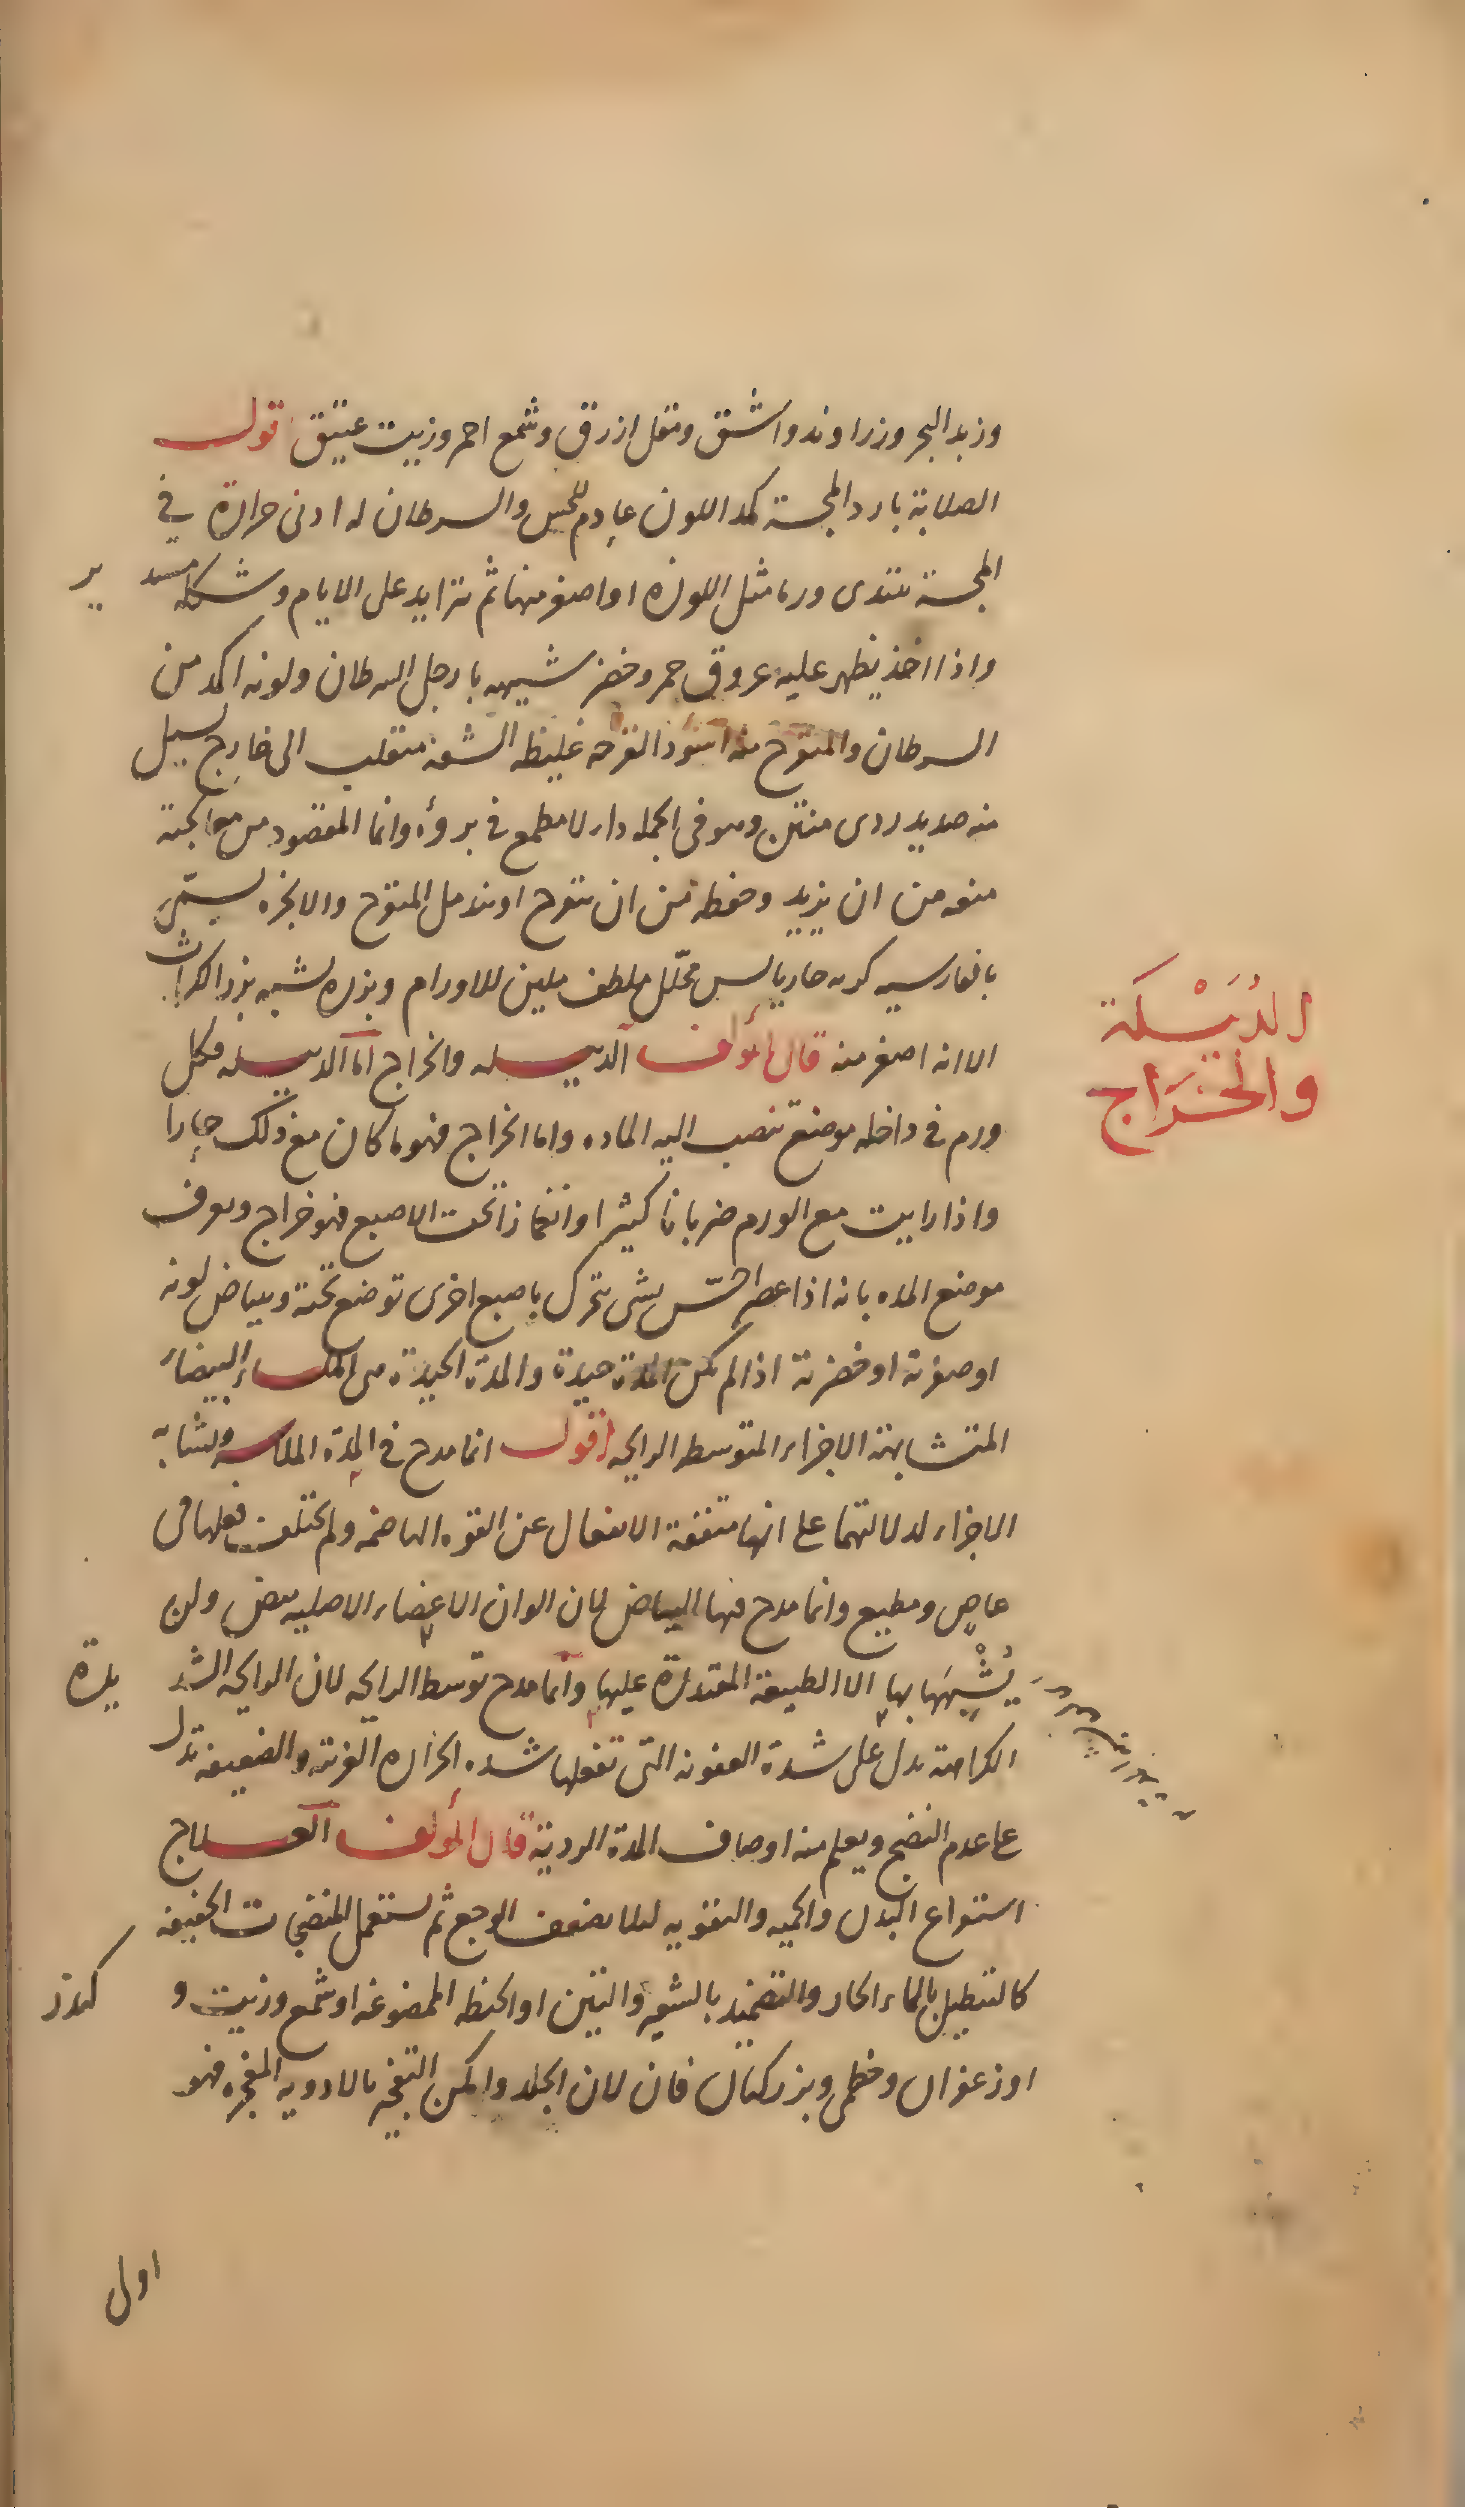 وزبد البحر وزراوند واشق ومقل ازرق وشمع احمر وزيت عتيق قول
الصلابة بارد المجسة كمد اللون عادم للحس والسرطان له ادنى حرارة في
المجسة يبتدى ورما مثل اللوزه او اصغر منها ثم تزايد على الايام وشكله مستدير
واذا اخذ يظهر عليه عروق حمر وخضر شبيهه بارجل السرطان ولونه اكمد من
السرطان والمتقرح منه اسود القرحه غليظه الشفة منقلب الى خارج يسيل
منه صديد ردى منتن وهو فى الجمله داء لا مطمع فى بروه وانما المقصود من معالجته
منعه من ان يزيد وحفظه من ان يتقرح او يندمل المتقرح والانجره يسمى
بالفارسيه كزنه حار يابس محلل ملطف ملين للاورام وبزره يشبه بزر الكراث
الا انه اصغر منه قال المؤلف الدبيله والخراج اما الدبيله فكل
ورم فى داخله موضع تنصب اليه الماده واما الخراج فهو ما كان مع ذلك حارا
واذا رايت مع الورم ضربانا كثيرا وانغمازا تحت الاصبع فهو خراج ويعرف
موضع المده بانه اذا عصر احس بشى يتحرك باصبع اخرى توضع تحته وببياض لونه
او صفرته او خضرته اذا لم تكن المدة جيدة والمدة الجيدة هى الملساء البيضاء
المتشابهة الاجزاء المتوسطه الرايحه اقول انما مدح فى المدة الملاسه وتشابه
الاجزاء لدلالتهما على انها متفقة الانفعال عن القوه الهاضمه ولم يختلف فعلها فى
عاص ومطيع وانما مدح فيها البياض لان الوان الاعضاء الاصليه بيض ولن
يشبهها بها الا الطبيعة المقتدرة عليها وانما مدح توسط الرايحه لان الرايحه الشديدة
الكراهة تدل على شدة العفونه التى تفعلها شده الحراره الغريبة والضعيفه تدل
على عدم النضج ويعلم منه اوصاف المدة الردية قال المؤلف العلاج
استفراغ البدن والحميه والتقويه لئلا يضعف الوجع ثم تستعمل المنضجات الخفيفه
كالتنطيل بالماء الحار والتضميد بالشعير والتين او الحنطه الممضوغه او شمع وزيت وكندر
او زعفران وخطمى وبزر كتان فان لان الجلد وامكن التفجير بالادويه المفجره فهو
اولى
الدُبَيْلَة
والخُرَاج